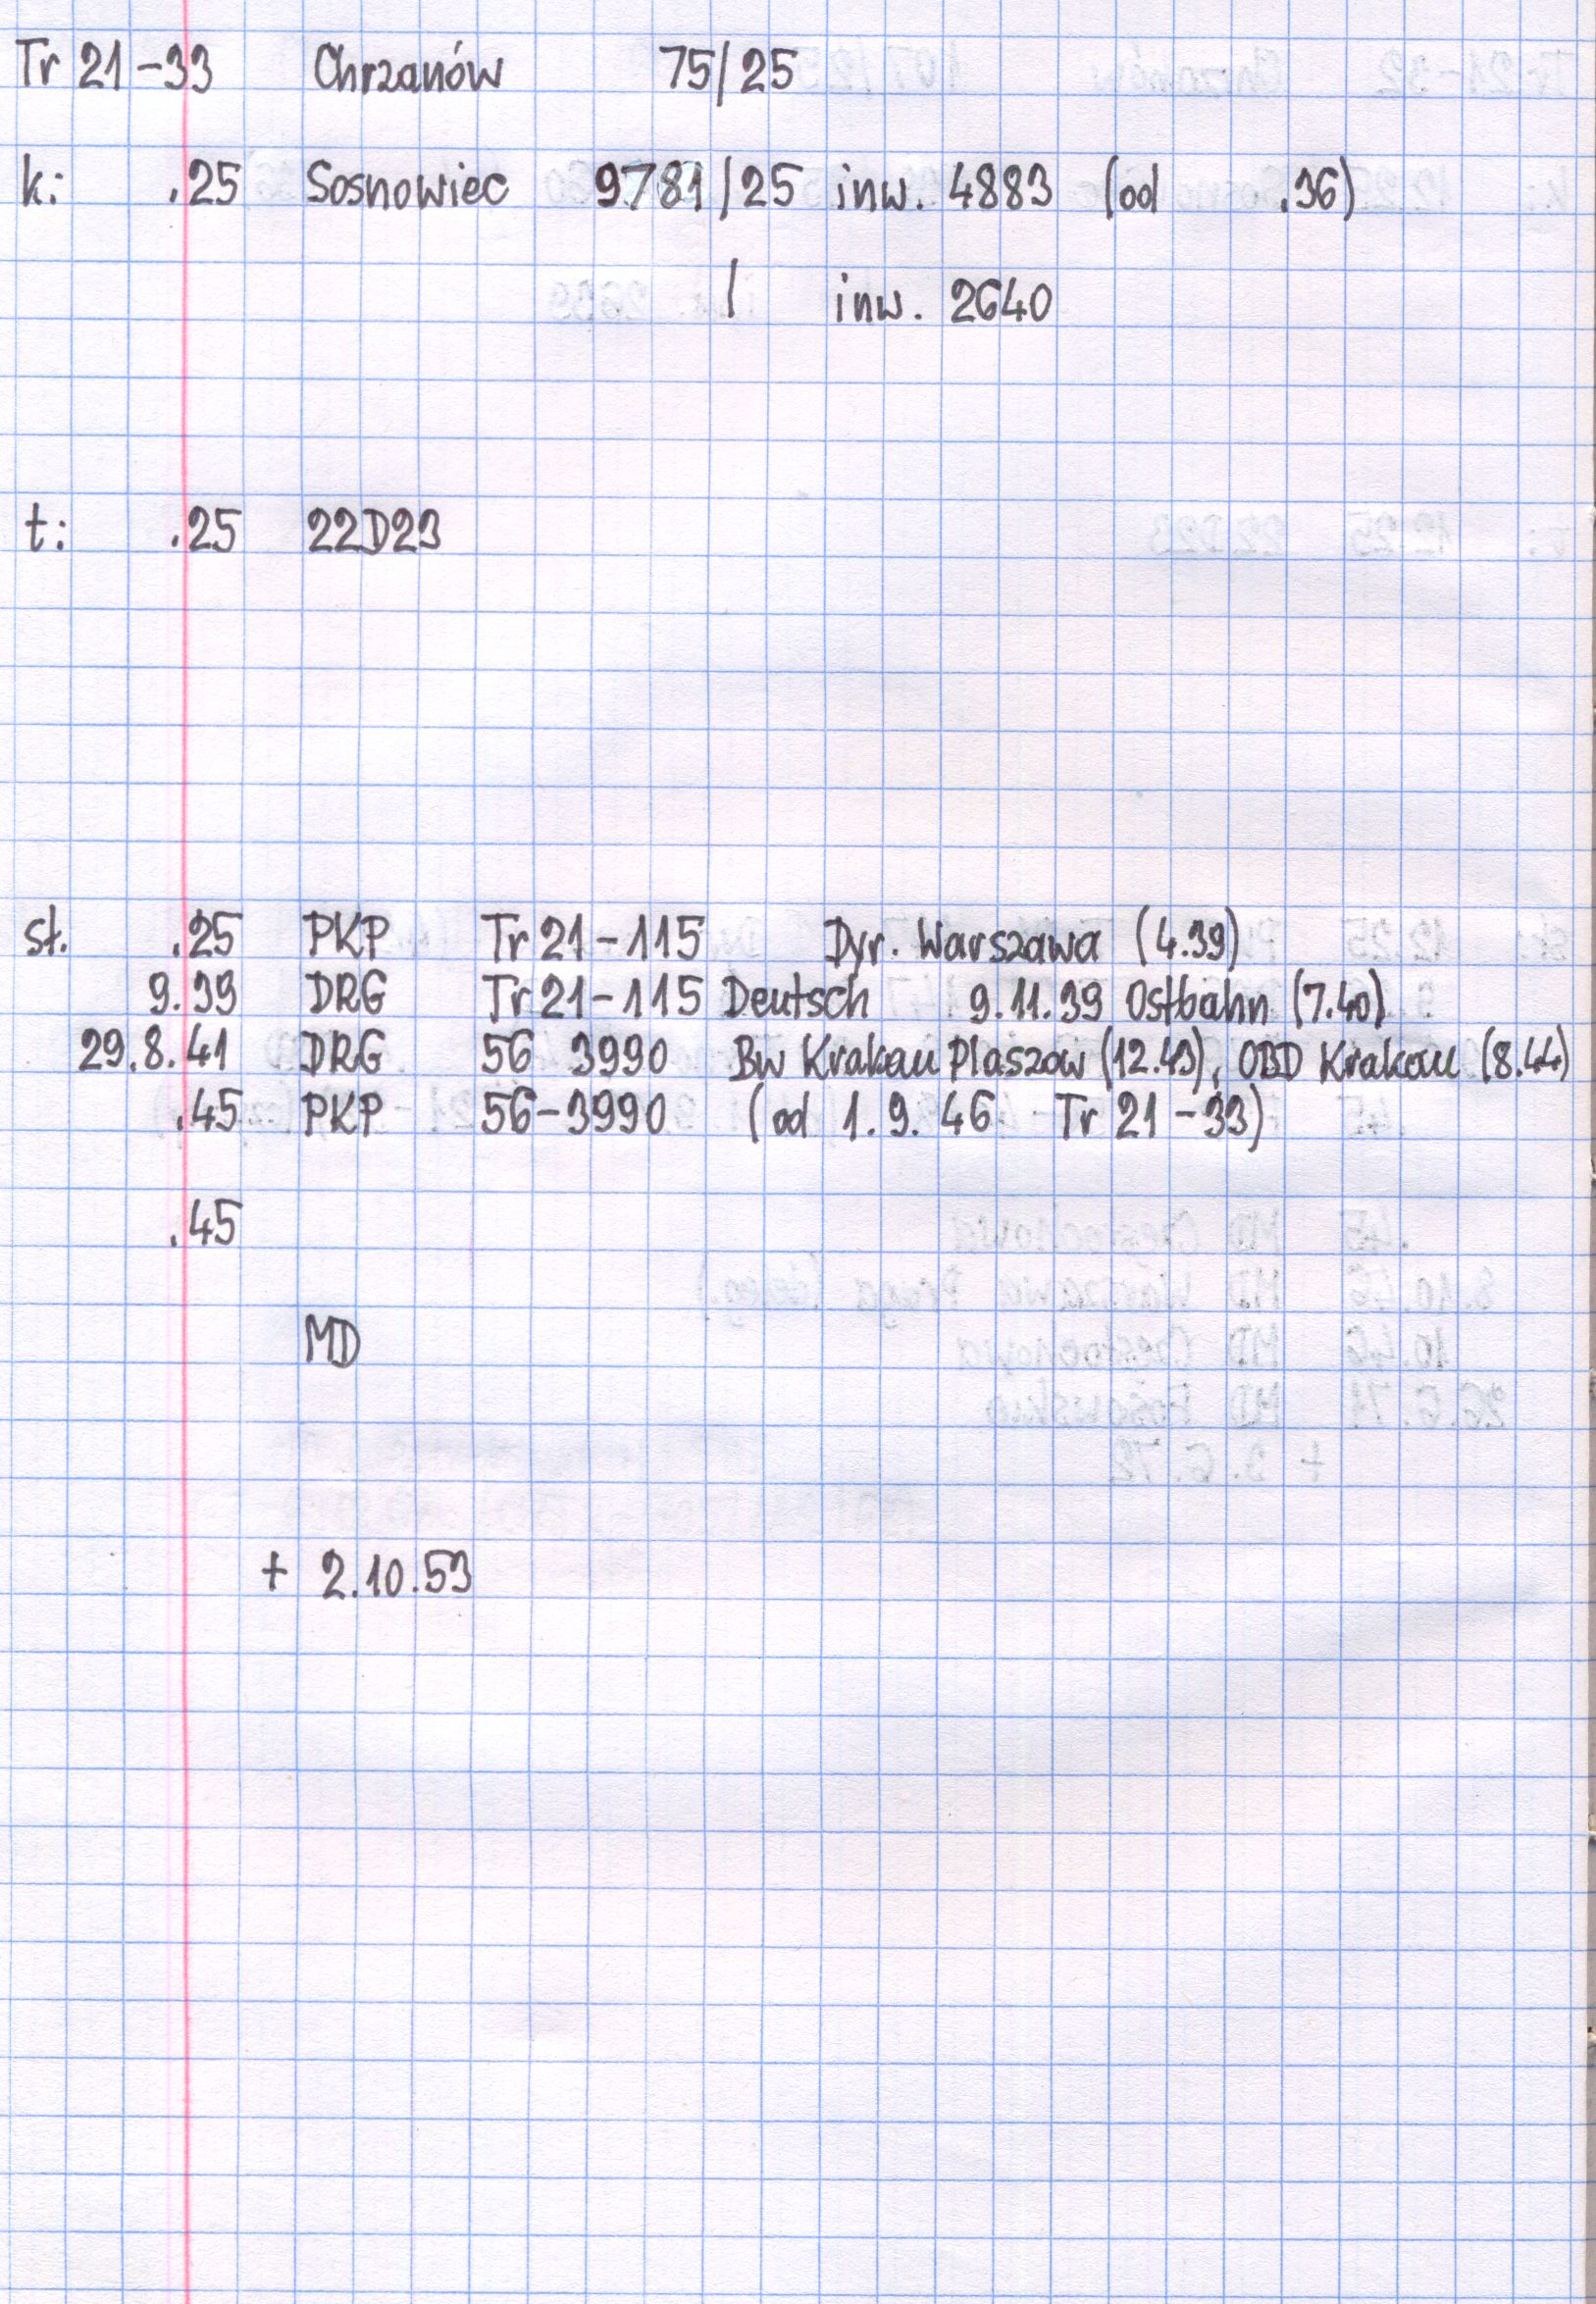 Tr 21-33 Chrzanów 75/25
k: .25 Sosnowiec 9781/25 inw. 4883 (od .36)
/ inw. 2640
t: .25 22D23
sł. .25 PKP Tr 21-115 Dyr. Warszawa (4.39)
9.39 DRG Tr 21-115 Deutsch 9.11.39 Ostbahn (7.40)
29.8.41 DRG 56 3990 Bw Krakau Plaszow (12.43), OBD Krakau (8.44)
.45 PKP 56-3990 (od 1.9.46 Tr 21-33)
.45
MD
+ 2.10.53